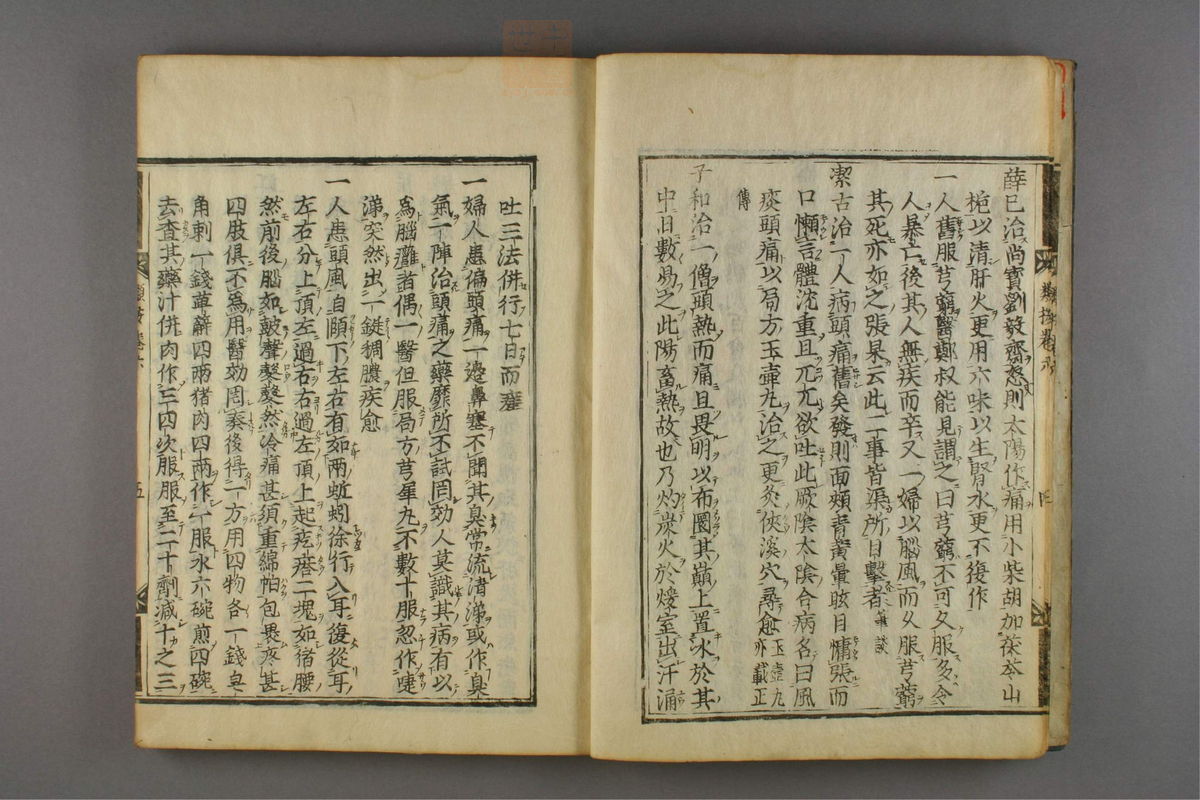 薛已治尚寶劉毅齋怒則太陽作痛用小柴胡加茯苓山
梔以清肝火更用六味以生腎水更不復作
一人舊服芎藭醫鄭叔能見謂之曰芎藭不可久服多令
人暴亡後其人無疾而卒又一婦以腦風而久服芎藭
其死亦如之張杲云此二事皆渠所目擊者筆談
潔古治一人病頭痛舊矣發則面頰青黃暈眩目慵張而
口懶言體沈重且兀兀欲吐此厥陰太陰合病名曰風
痰頭痛以局方玉壷丸治之更灸俠溪穴尋愈玉壷丸亦載正
傳
子和治一僧頭熱而痛且畏明以布圜其巔上置氷於其
中日數易之此陽畜熱故也乃灼炭火於煖室出汗涌
吐三法併行七日而
一婦人患偏頭痛一邉鼻塞不聞其臭常流清涕或作臭
氣一陣治頭痛之藥靡所不試罔効人莫識其病有以
爲腦癰者偶一醫但服局方芎犀丸不數十服忽作嚏
涕突然出一鍵稠膿疾愈
一人患頭風自頤下左右有如兩蚯蚓徐行入耳復從耳
左右分上頂左過右右過左頂上起疙瘩二塊如猪腰
然前後腦如鼓聲鼕鼕然冷痛甚須重綿帕包畏疼甚
四肢俱不爲用醫効罔奏後得一方用四物各一錢皂
角刺一錢萆薢四兩猪肉四兩作一服水六碗煎四碗
去査其藥汁併肉作三四次服服至二十劑減十之三
五